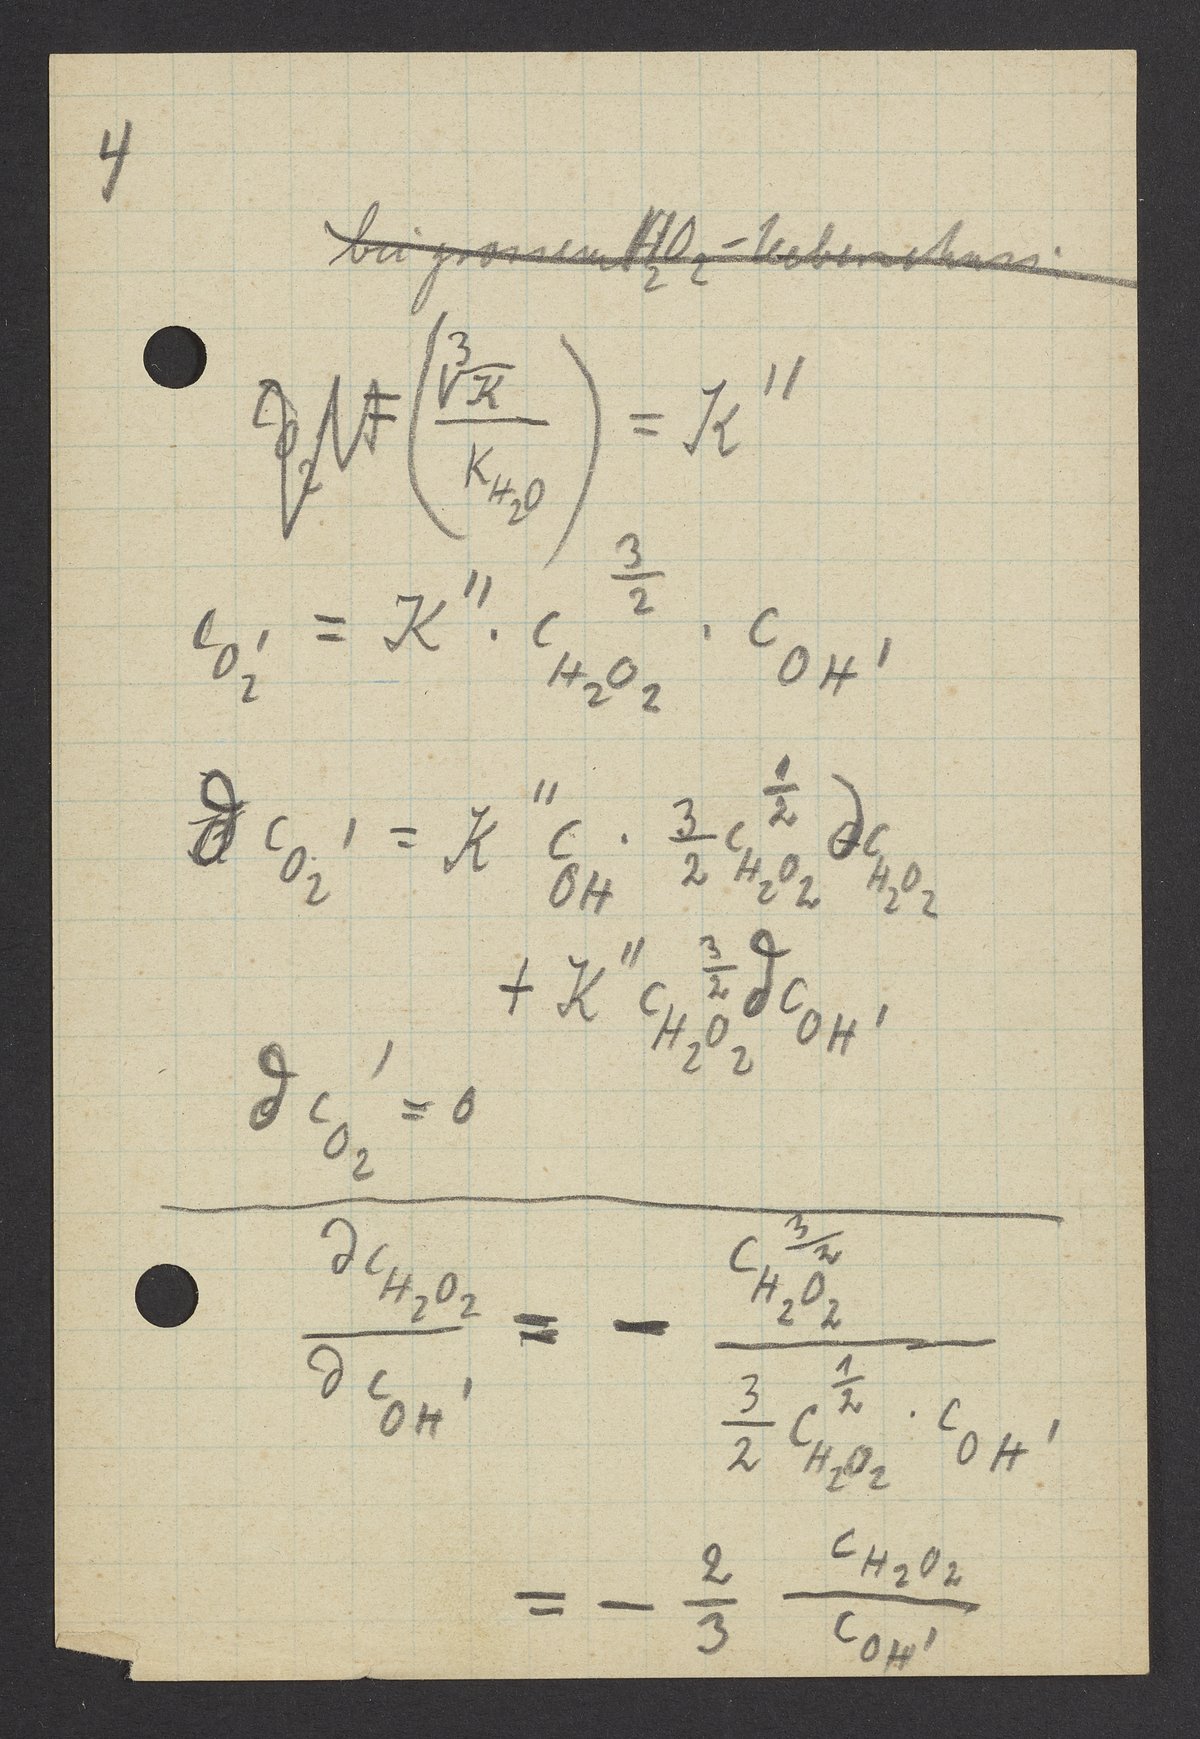 4
bei grossem H₂O₂-Ueberschuss
(∛K / K_H₂O) = K''
c_O₂' = K'' · c_H₂O₂^(3/2) · c_OH'
∂ c_O₂' = K'' c_OH · 3/2 c_H₂O₂^(1/2) ∂c_H₂O₂
+ K'' c_H₂O₂^(3/2) ∂c_OH'
∂ c_O₂' = 0
∂c_H₂O₂ / ∂c_OH' = − c_H₂O₂^(3/2) / (3/2 c_H₂O₂^(1/2) · c_OH')
= − 2/3 c_H₂O₂ / c_OH'